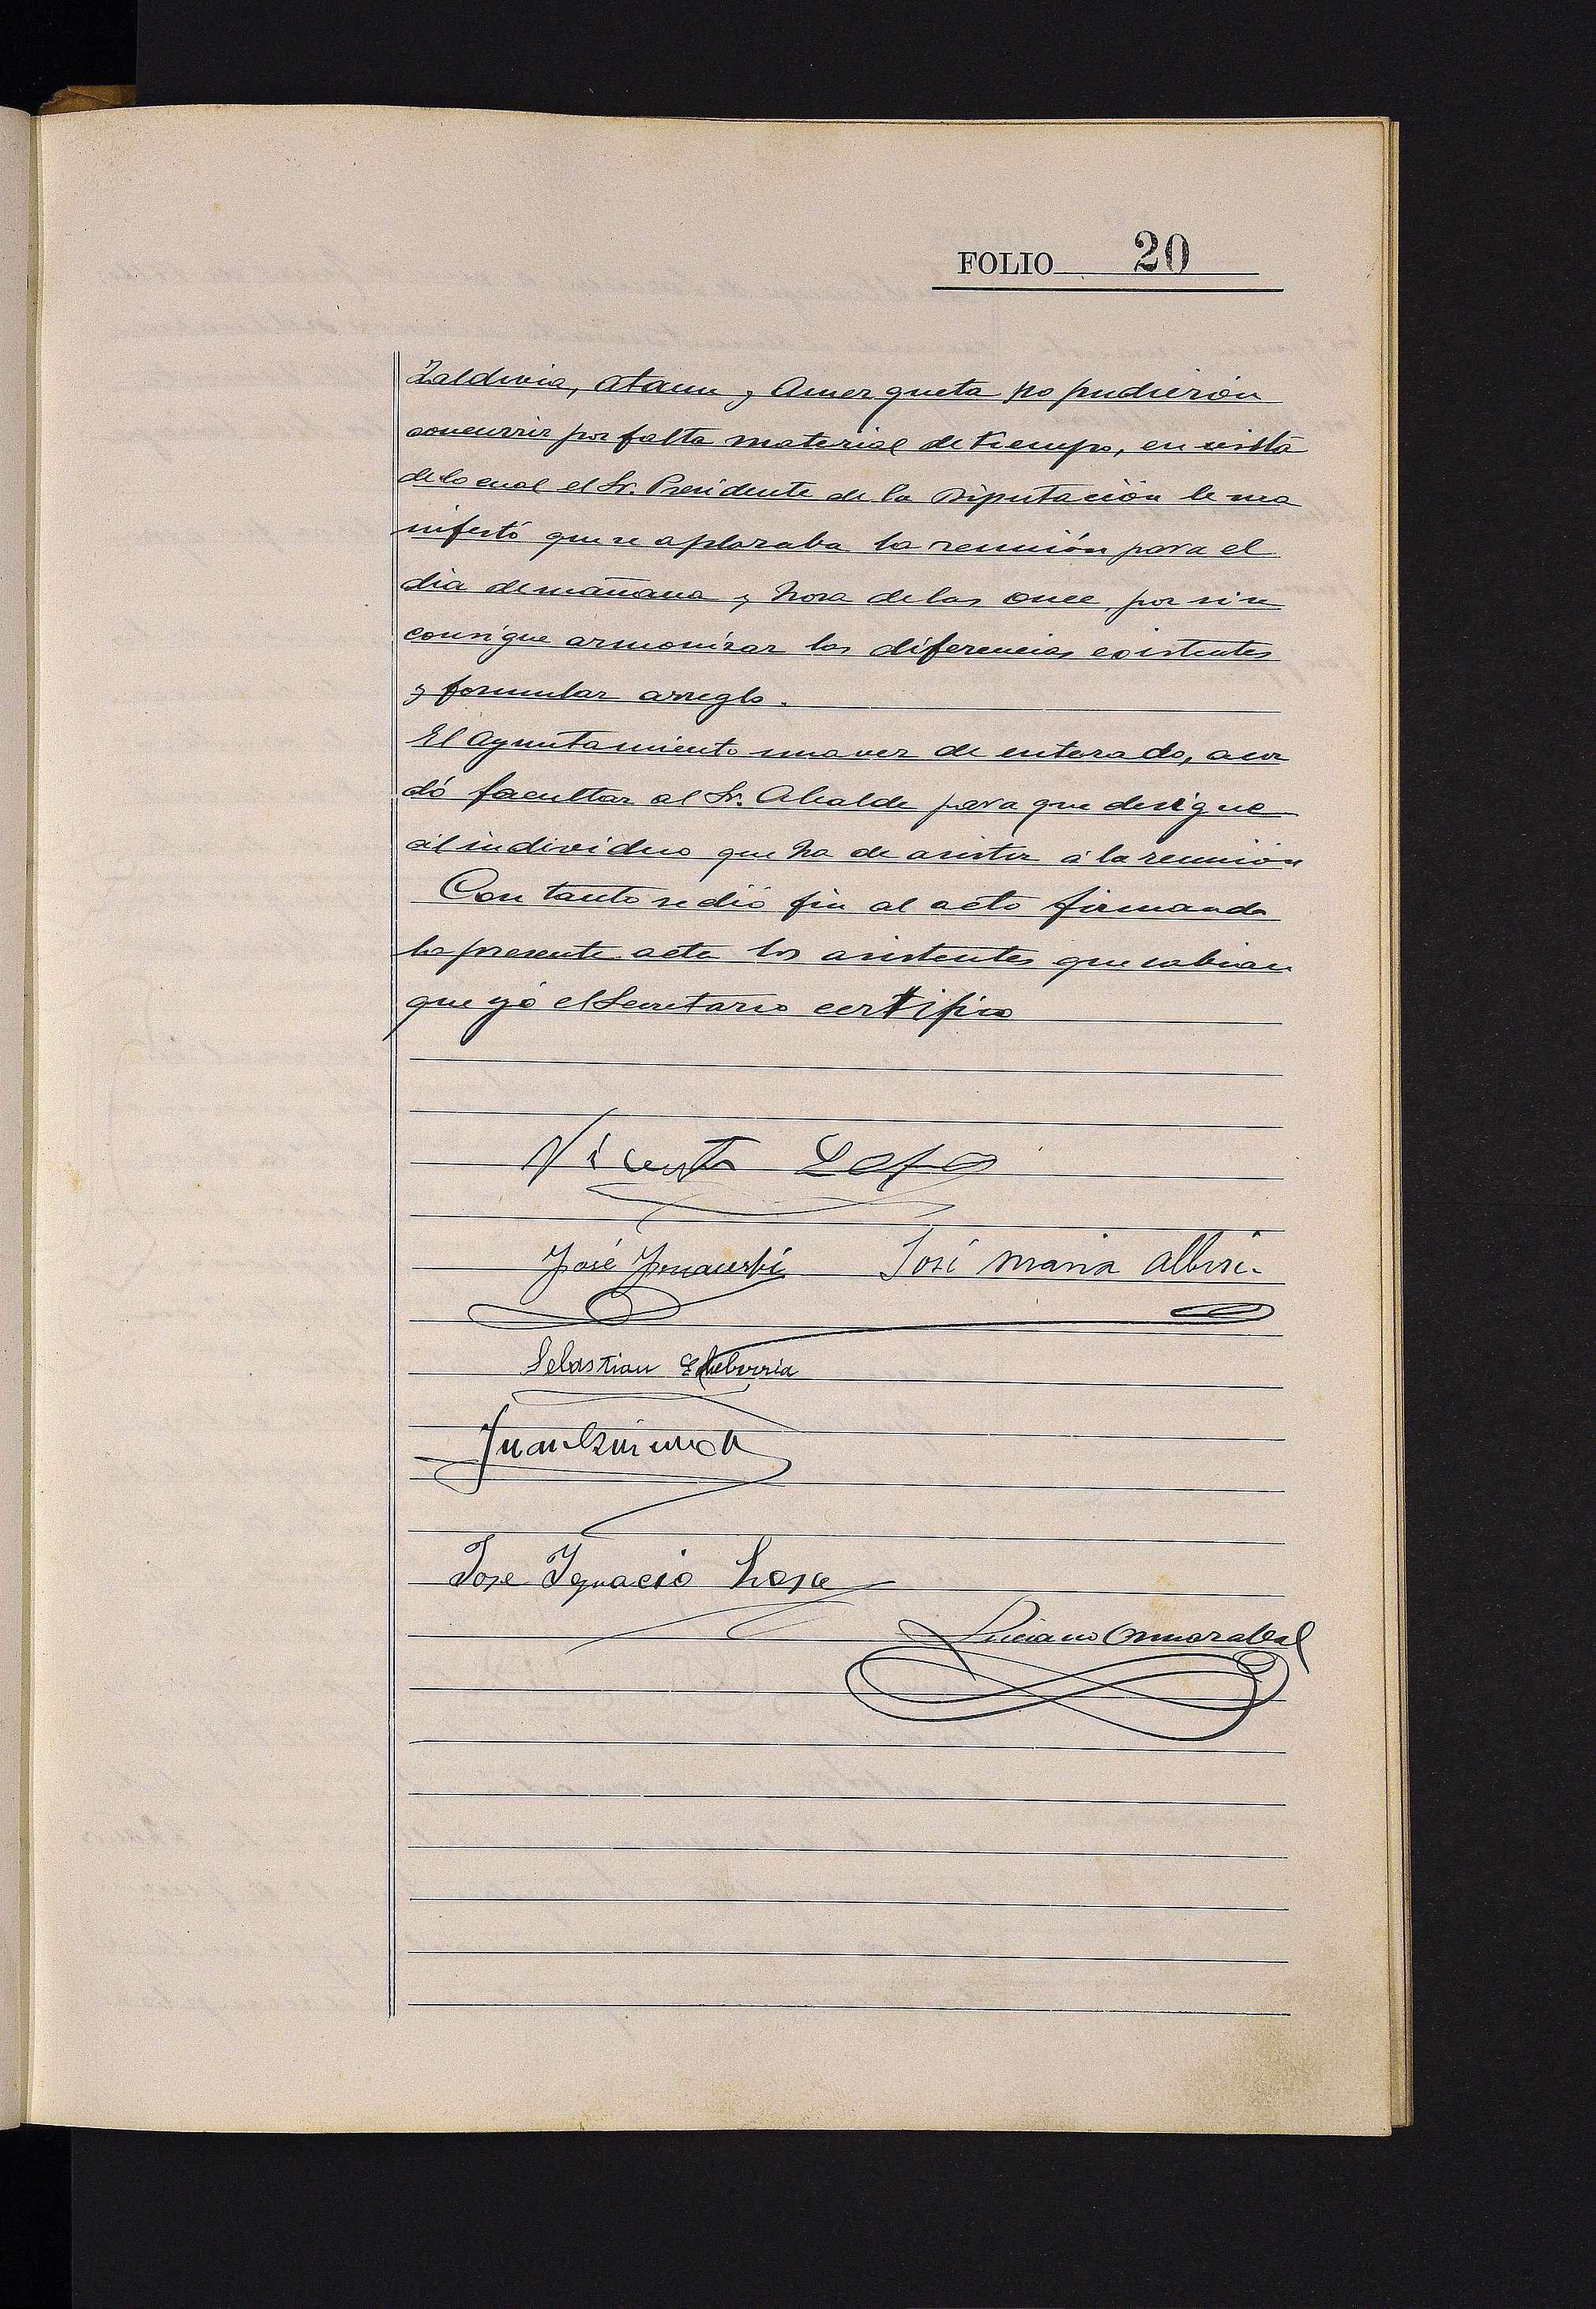 FOLIO 20
Zaldivia, Ataun y Amezqueta no pudierón
concurrir por falta material de tiempo, en vista
de lo cual el Sr. Presidente de la Diputación le ma
nifestó que se aplazaba la reunión para el
dia de mañana y hora de las once, por si se
consigue armonizar las diferencias existentes
y formular arreglo.
El Ayuntamiento una vez de enterado, acor
dó facultar al Sr. Alcalde para que designe
al individuo que ha de asistir á la reunión
Con tanto se dió fin al acto firmando
la presente acta los asistentes que sabian
que yó el Secretario certifico
Vicente
José José Maria Alb
Sebastian Echeberria
Juan
Jose Ignacio Lasa
Luciano